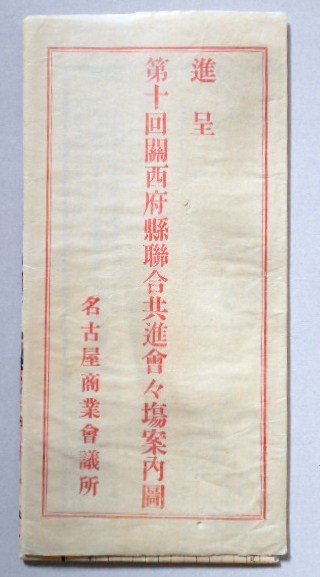 進呈
第十回關西府縣聯合共進會々塲案內圖
名古屋商業會議所